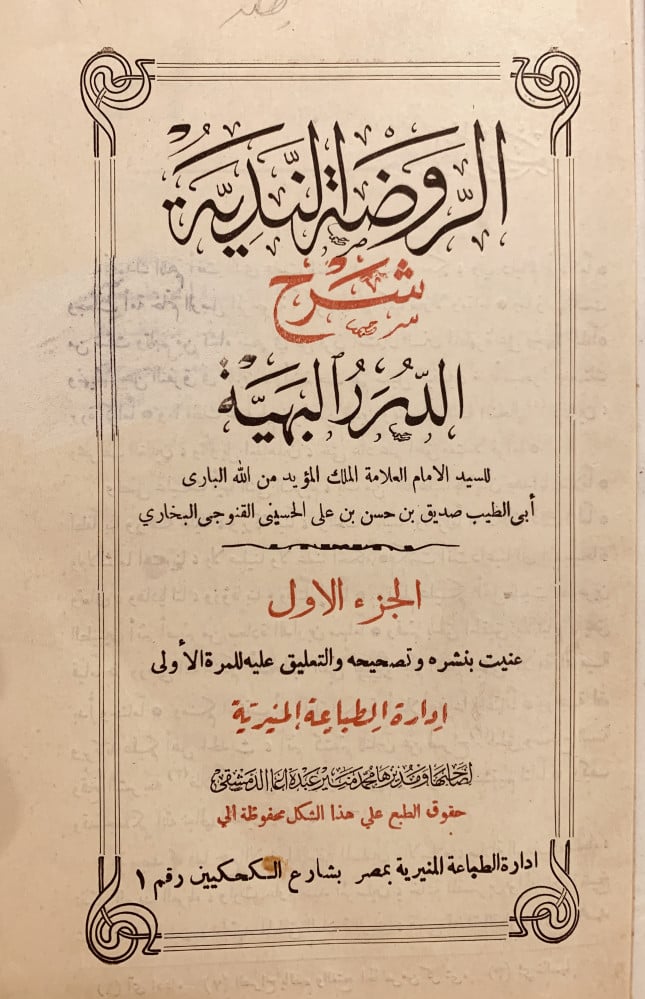 الرَّوضَة النَّدِيَّة
شَرْح
الدُّرَرُ البَهِيَّة
للسيد الامام العلامة الملك المؤيد من الله البارى
أبى الطيب صديق بن حسن بن على الحسينى القنوجى البخارى
الجزء الاول
عنيت بنشره وتصحيحه والتعليق عليه للمرة الأولى
إدارة الطباعة المنيرية
لصاحبها ومديرها محمد منير عبده اغا الدمشقى
حقوق الطبع على هذا الشكل محفوظة الى
ادارة الطباعة المنيرية بمصر بشارع الكحكيين رقم ١